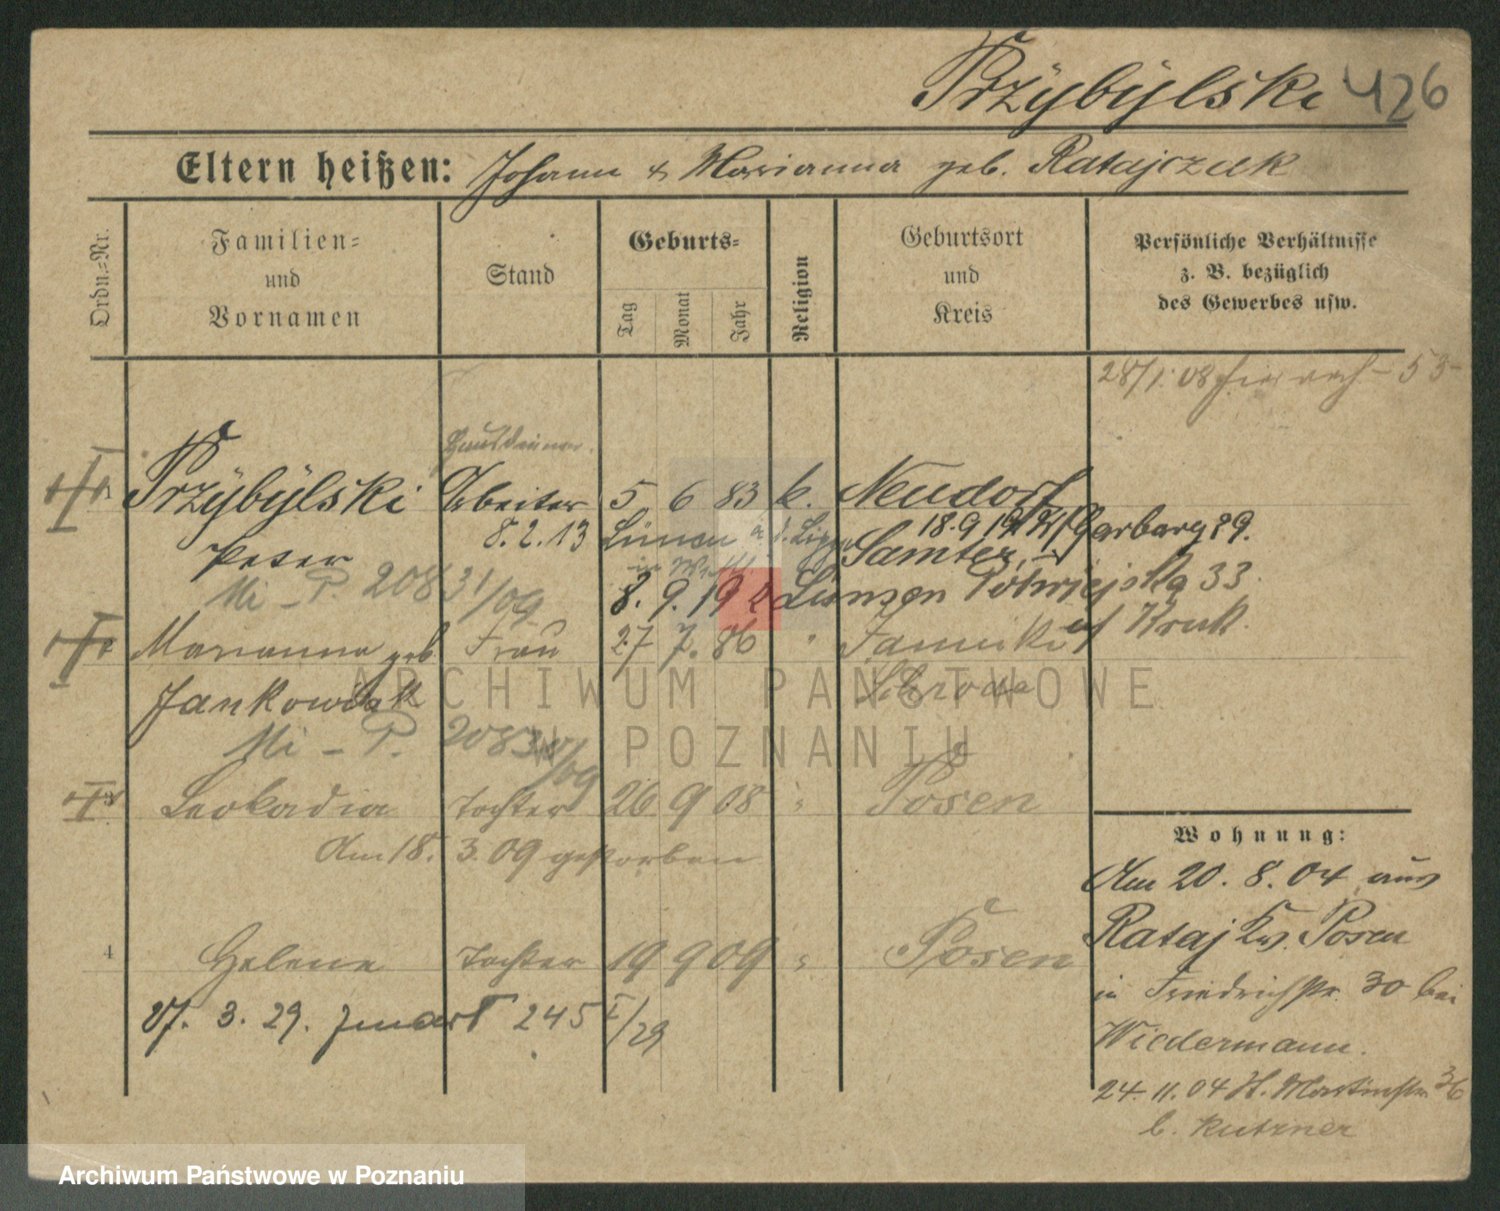 Przÿbÿlski 426
Eltern heißen: Johann & Marianna geb. Ratajczak
Ordn.-Nr.
Familien- und Vornamen
Stand
Geburts-
Tag Monat Jahr
Religion
Geburtsort und Kreis
Persönliche Verhältnisse z. B. bezüglich des Gewerbes usw.
28/1. 08 53
1 Przÿbÿlski Arbeiter 5 6 83 k. Neudorf
8.2.13 18.9.19 Garbary 29.
Peter Samter
Mi - P. 208 31/09 8. 9. 19 33
2 Marianna geb Frau 27 7. 86 "
Jankowiak Schroda
Mi - P. 208 31/09
3 Leokadia Tochter 26 9 08 " Posen
Am 18. 3. 09 gestorben
4 Helene Tochter 19 9 09 " Posen
3. 29. 245 I/29
Wohnung:
Am 20. 8. 04 aus
Rataj Kr. Posen
in Friedrichstr. 30 bei
Wiedermann.
24. 11. 04 St. Martinstr 36
b. Kutzner
ARCHIWUM PAŃSTWOWE
W POZNANIU
Archiwum Państwowe w Poznaniu